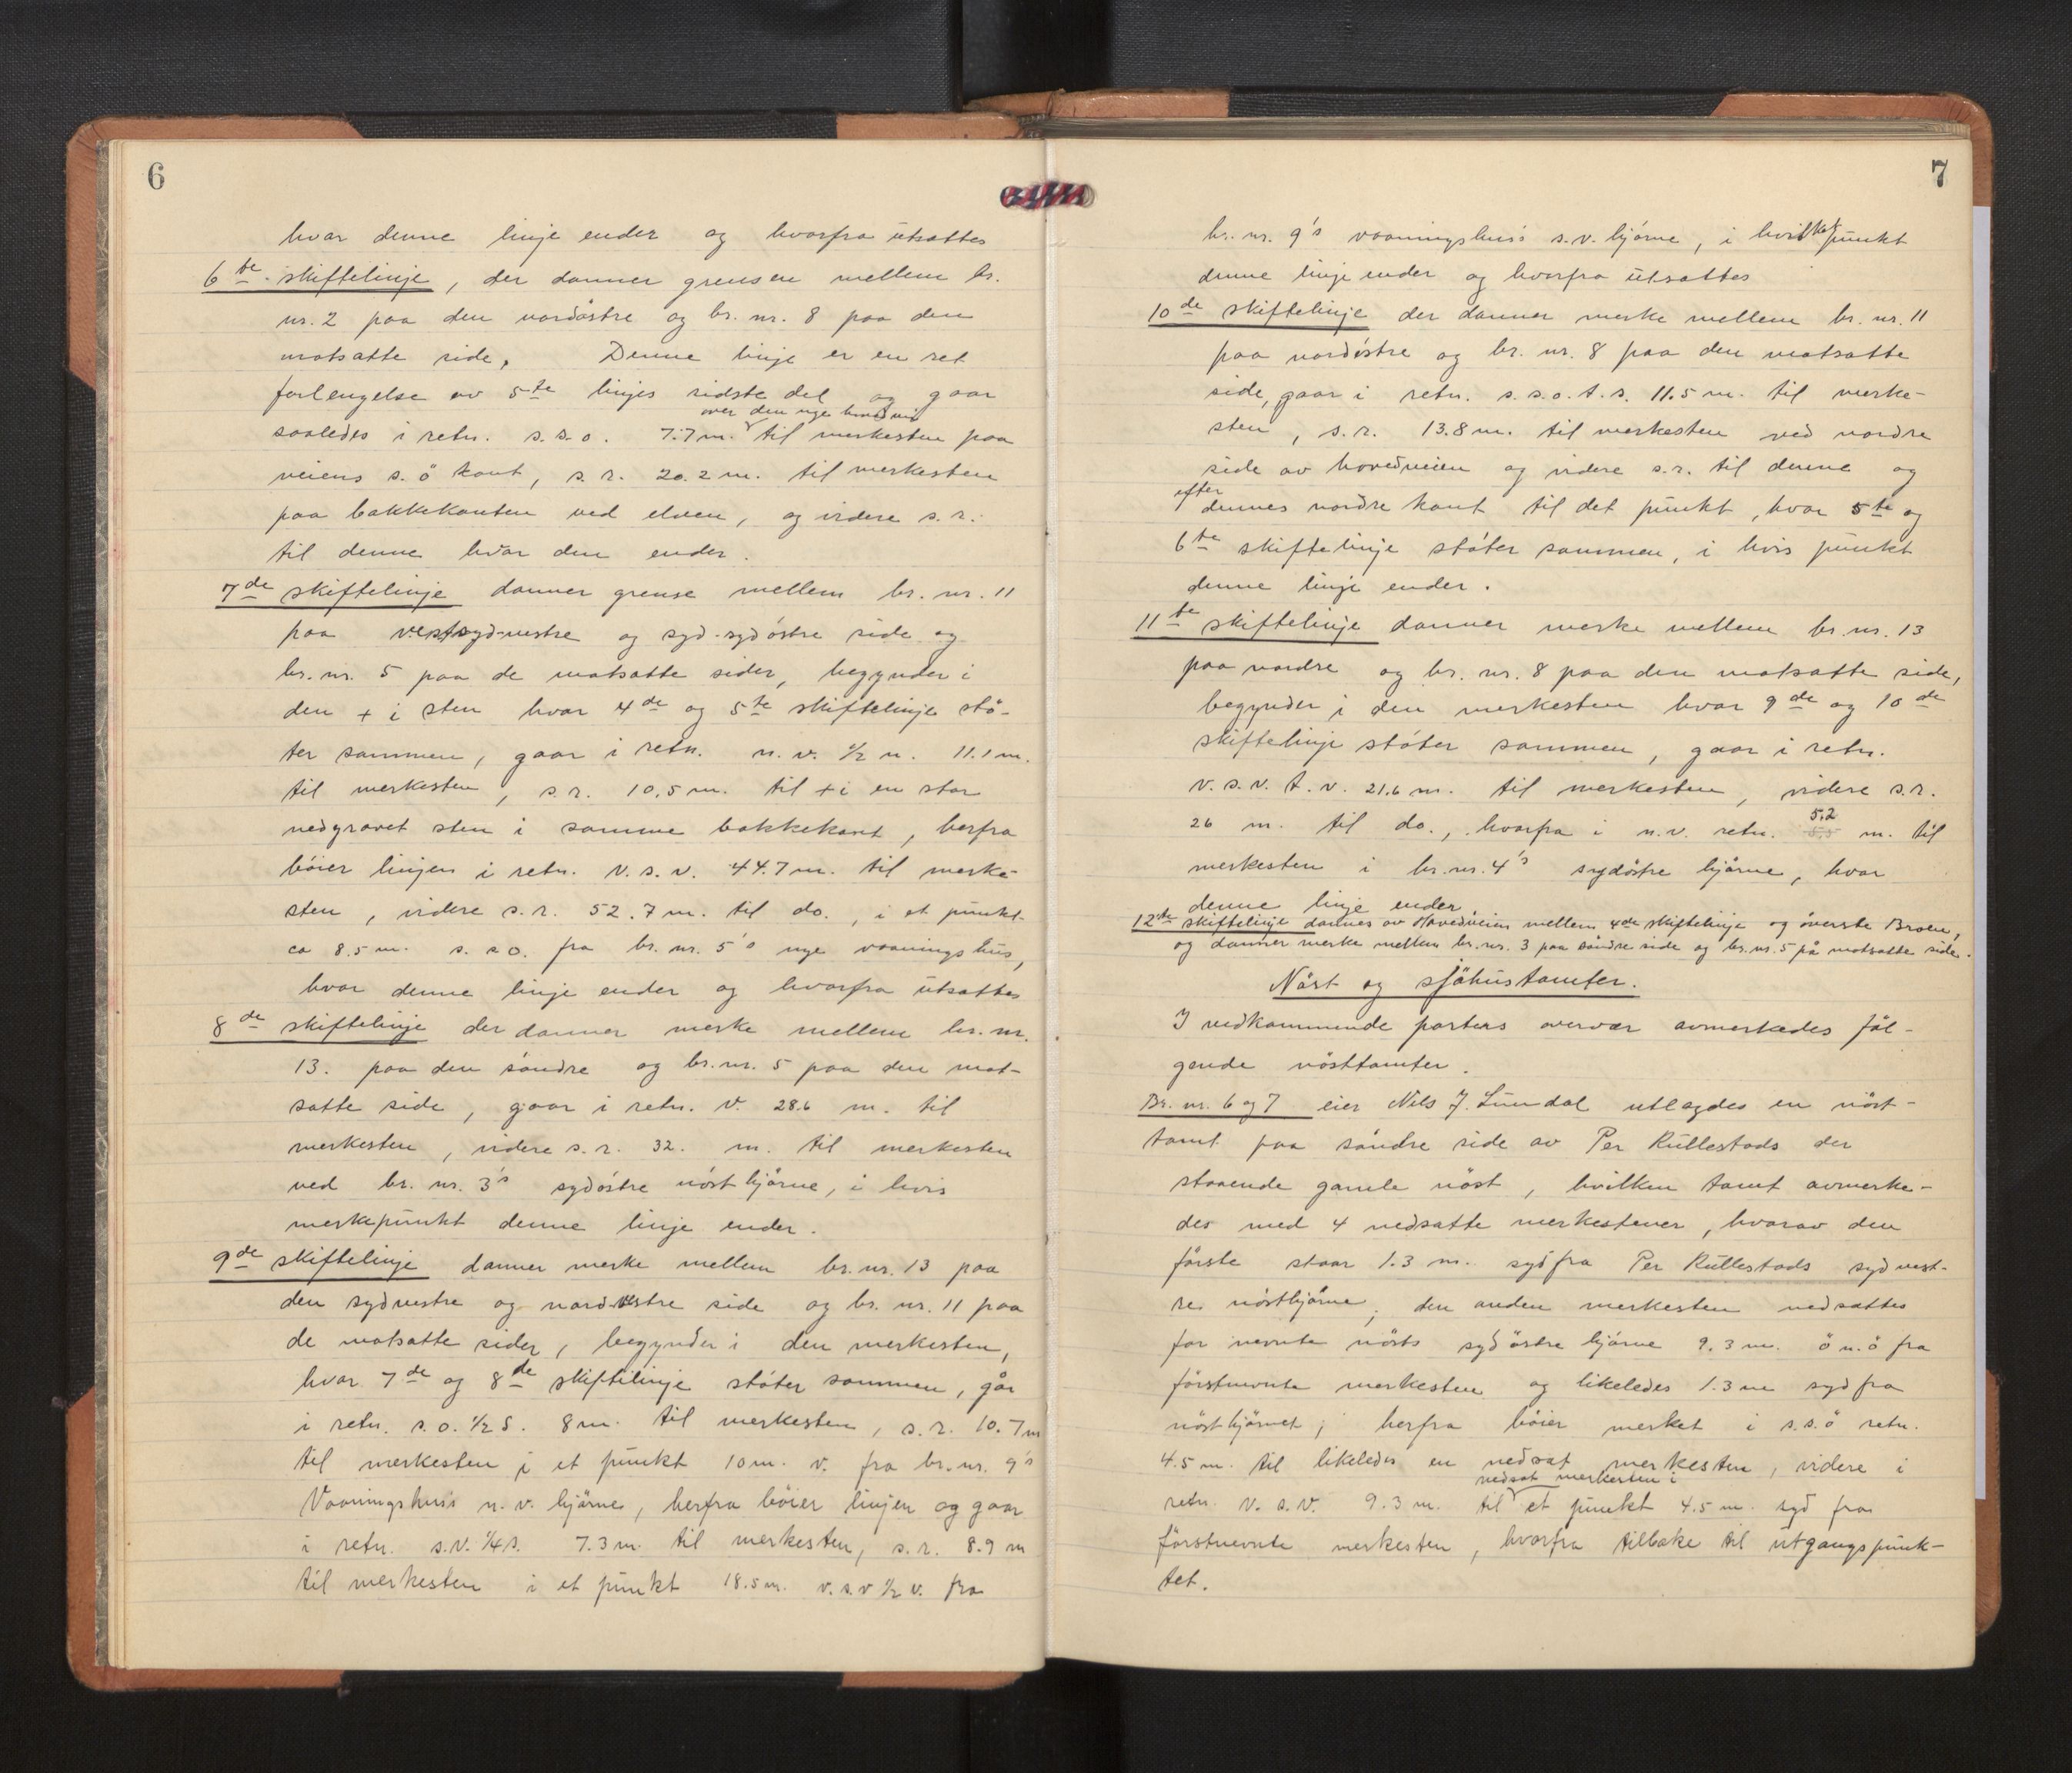 6
hvor denne linje ender og hvorfra utsættes
6te skiftelinje, der danner grensen mellem br.
nr. 2 paa den nordøstre og br. nr. 8 paa den
motsatte side. Denne linje er en ret
forlengelse av 5te linjes sidste del og gaar
over den nye hovedvei
saaledes i retn. s.s.o. 7.7 m. til merkesten paa
veiens s.ö kant, s.r. 20.2 m. til merkesten
paa bakkekanten ved elven, og videre s.r.
til denne hvor den ender.
7de skiftelinje danner grense mellem br. nr. 11
paa vestsyd-vestre og syd-sydöstre side og
br. nr. 5 paa de motsatte sider, begynder i
den + i sten hvor 4de og 5te skiftelinje stö-
ter sammen, gaar i retn. n.v. 1/2 n. 11.1 m.
til merkesten, s.r. 10.5 m. til + i en stor
nedgravet sten i samme bakkekant, herfra
böier linjen i retn. v.s.v. 44.7 m. til merke-
sten, videre s.r. 52.7 m. til do., i et punkt
ca 8.5 m. s.s.o. fra br. nr. 5's nye vaaningshus,
hvor denne linje ender og hvorfra utsattes
8de skiftelinje der danner merke mellem br. nr.
13. paa den søndre og br. nr. 5 paa den mot-
satte side, gaar i retn. v. 28.6 m. til
merkesten, videre s.r. 32. m. til merkesten
ved br. nr. 3's sydöstre nösthjörne, i hvis
merkepunkt denne linje ender.
9de skiftelinje danner merke mellem br. nr. 13 paa
den sydvestre og nordvestre side og br. nr. 11 paa
de motsatte sider, begynder i den merkesten,
hvor 7de og 8de skiftelinje stöter sammen, går
i retn. s.o. 1/2 S. 8 m. til merkesten, s.r. 10.7 m
til merkesten i et punkt 10 m. v. fra br. nr. 9's
Vaaningshus's n.v. hjörne, herfra böier linjen og gaar
i retn. s.v. 1/4 s. 7.3 m. til merkesten, s.r. 8.9 m
til merkesten i et punkt 18.5 m. v.s.v 1/2 v. fra
7
br. nr. 9's vaaningshus's s.v. hjörne, i hvilket punkt
denne linje ender og hvorfra utsattes
10de skiftelinje der danner merke mellem br. nr. 11
paa nordöstre og br. nr. 8 paa den motsatte
side, gaar i retn. s.s.o. t.s. 11.5 m. til merke-
sten, s.r. 13.8 m. til merkesten ved nordre
side av hovedveien og videre s.r. til denne og
efter
dennes nordre kant til det punkt, hvor 5te og
6te skiftelinje stöter sammen, i hvis punkt
denne linje ender.
11te skiftelinje danner merke mellem br. nr. 13
paa nordre og br. nr. 8 paa den motsatte side,
begynder i den merkesten hvor 9de og 10de
skiftelinje stöter sammen, gaar i retn.
v.s.v. t.v. 21.6 m. til merkesten, videre s.r.
5,2
26 m. til do., hvorfra i n.v. retn. m. til
merkesten i br. nr. 4's sydöstre hjörne, hvor
denne linje ender
12te skiftelinje dannes av Hovedveien mellem 4de skiftelinje og överste Broen,
og danner merke mellem br. nr. 3 paa söndre side og br. nr. 5 på motsatte side.
Nöst og sjöhustomter.
I vedkommende parters overvær avmerkedes föl-
gende nösttomter.
Br. nr. 6 og 7 eier Nils J. Lundal utlagdes en nöst-
tomt paa söndre side av Per Rullestads der
staaende gamle nöst, hvilken tomt avmerke-
des med 4 nedsatte merkestener, hvorav den
förste staar 1.3 m. syd fra Per Rullestads sydvest-
re nösthjörne, den anden merkesten nedsattes
for nevnte nösts sydöstre hjörne 9.3 m. ö n.ö fra
förstnevnte merkesten og likeledes 1.3 m syd fra
nösthjörnet; herfra böier merket i s.s.ö retn.
4.5 m. til likeledes en nedsat merkesten, videre i
nedsat merkesten i
retn. v.s.v. 9.3 m. til et punkt 4.5 m. syd fra
förstnevnte merkesten, hvorfra tilbake til utgangspunk-
tet.